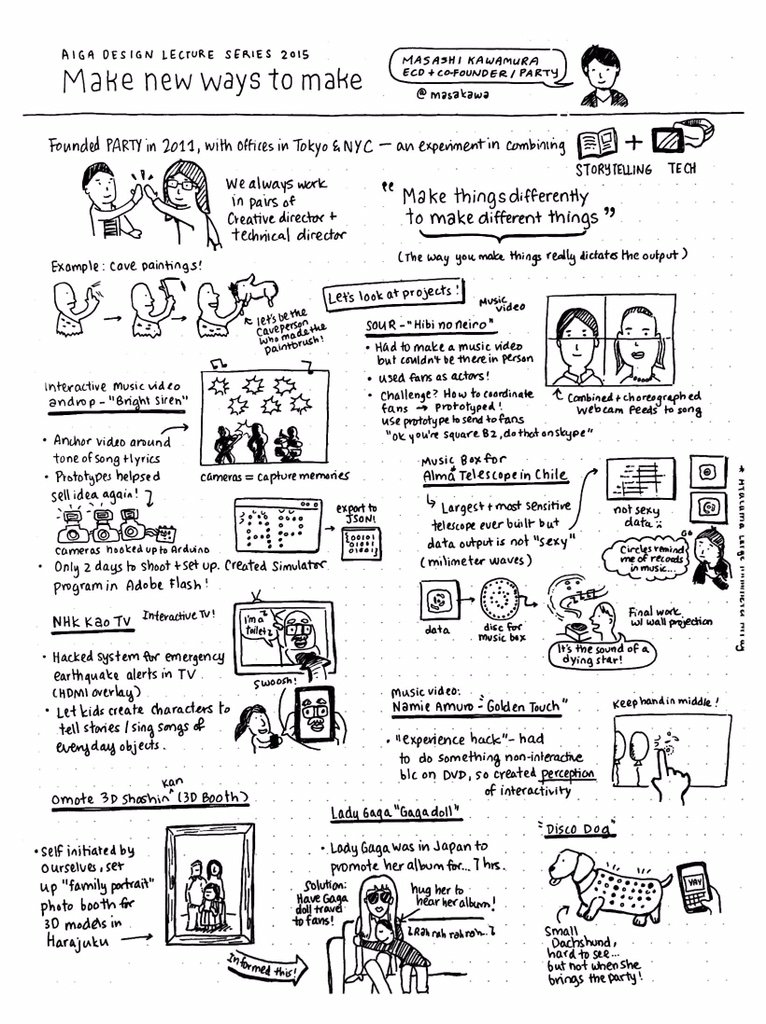 AIGA DESIGN LECTURE SERIES 2015
Make new ways to make
MASASHI KAWAMURA
ECD + CO-FOUNDER / PARTY
@masakawa
Founded PARTY in 2011, with offices in Tokyo & NYC — an experiment in combining
STORYTELLING + TECH
We always work
in pairs of
Creative director +
technical director
"Make things differently
to make different things"
(The way you make things really dictates the output)
Example: Cave paintings!
let's be the
caveperson
who made the
paintbrush!
Let's look at projects!
Music
video
SOUR - "Hibi no neiro"
• Had to make a music video
but couldn't be there in person
• used fans as actors!
• Challenge? How to coordinate
fans → prototyped!
use prototype to send to fans
"ok you're square B2, do that on skype"
Combined + choreographed
webcam feeds to song
Interactive music video
androp - "Bright Siren"
• Anchor video around
tone of song + lyrics
• Prototypes helpsed
sell idea again!
cameras = capture memories
cameras hooked up to Arduino
export to
JSON!
• Only 2 days to shoot + set up. Created Simulator
program in Adobe Flash!
Music Box for
Alma* Telescope in Chile
Largest + most sensitive
telescope ever built but
data output is not "sexy"
(milimeter waves)
not sexy
data
Circles remind
me of records
in music...
data
disc for
music box
Final work
w/ wall projection
It's the sound of a
dying star!
NHK Kao TV
Interactive TV!
I'm a
toilet
• Hacked system for emergency
earthquake alerts in TV
(HDMI overlay)
• Let kids create characters to
tell stories / sing songs of
everyday objects.
swoosh!
Music video:
Namie Amuro - "Golden Touch"
• "experience hack" - had
to do something non-interactive
b/c on DVD, so created perception
of interactivity
Keep hand in middle!
Omote 3D Shashin kan (3D Booth)
• Self initiated by
ourselves, set
up "family portrait"
photo booth for
3D models in
Harajuku
Informed this!
Lady Gaga "Gagadoll"
• Lady Gaga was in Japan to
promote her album for... 7 hrs.
Solution:
Have Gaga
doll travel
to fans!
hug her to
hear her album!
Rah rah rah rah...
"Disco Dog"
YAY
Small
Dachshund,
hard to see...
but not when she
brings the party!